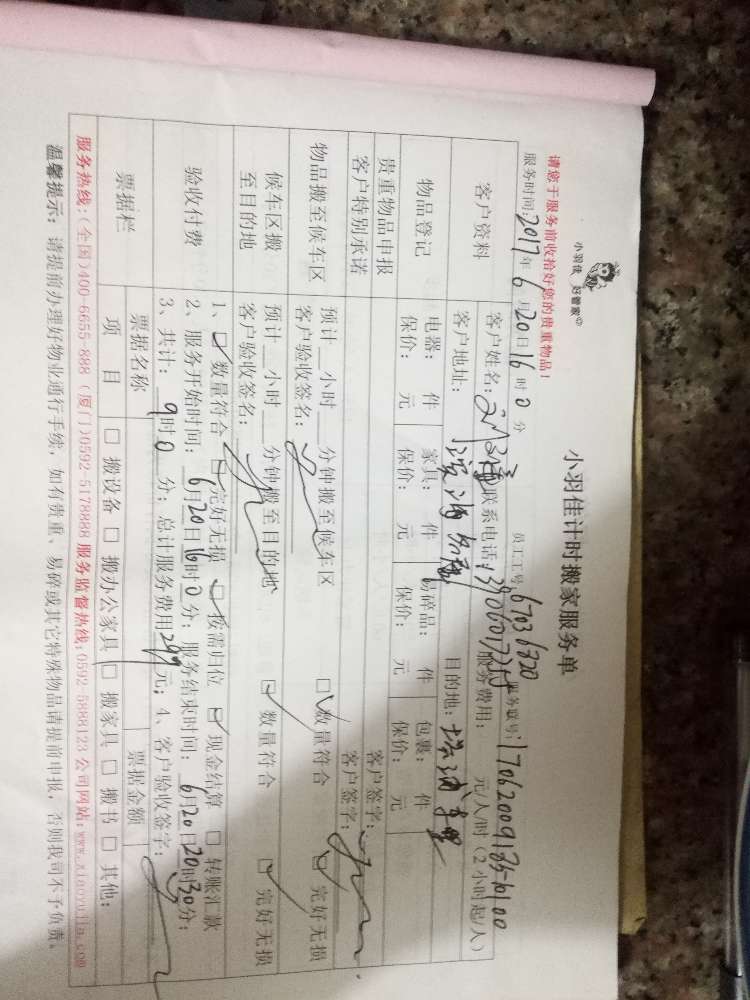 小羽佳 好管家
小羽佳计时搬家服务单
请您于服务前收拾好您的贵重物品!
员工工号: 67036720 服务联号:
服务时间: 2017年6月20日16时0分
客户资料
客户姓名: 联系电话: 服务费用: 元/人/时(2小时起/人)
客户地址: 目的地:
物品登记
电器: 件 家具: 件 易碎品: 件 包裹: 件
保价: 元 保价: 元 保价: 元 保价: 元
贵重物品申报 客户签字:
客户特别承诺 客户签字:
物品搬至候车区
预计__小时__分钟搬至候车区 □数量符合 □完好无损
客户验收签名:
候车区搬
至目的地
预计__小时__分钟搬至目的地 □数量符合 □完好无损
客户验收签名:
验收付费
1、□数量符合 □完好无损 □按需归位 □现金结算 □转账汇款
2、服务开始时间: 6月20日16时0分; 服务结束时间: 6月20日20时30分;
3、共计: 9时0分; 总计服务费用299元; 4、客户验收签字:
票据栏
票据名称 票据金额
项目 □搬设备 □搬办公家具 □搬家具 □搬书 □其他:
服务热线:(全国)400-6655-888 (厦门)0592-5178888 服务监督热线:0592-5888123 公司网站:www.xiaoyujia.com
温馨提示: 请提前办理好物业通行手续, 如有贵重、易碎或其它特殊物品请提前申报, 否则我司不予负责。